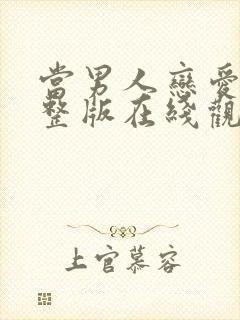 當男人戀愛
整版在綫觀
上官慕容